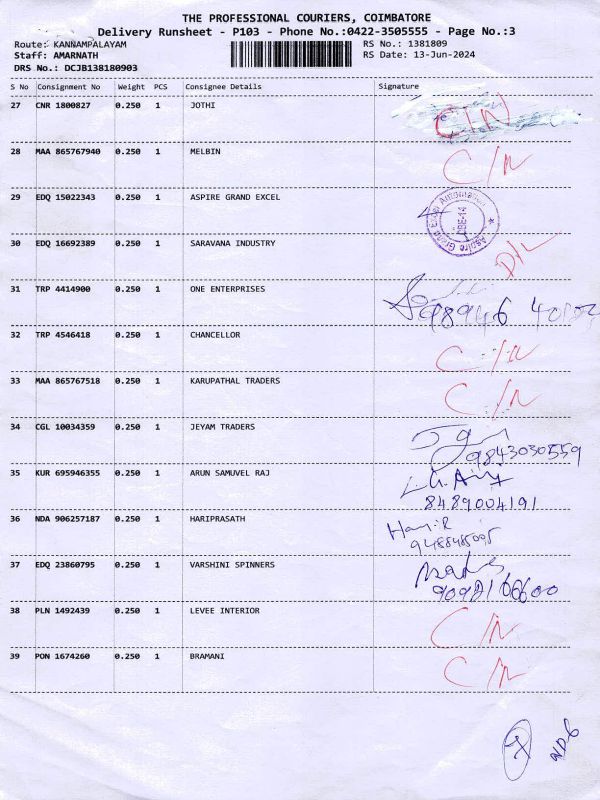 THE PROFESSIONAL COURIERS, COIMBATORE
Delivery Runsheet - P103 - Phone No.:0422-3505555 - Page No.:3
Route: KANNAMPALAYAM RS No.: 1381809
Staff: AMARNATH RS Date: 13-Jun-2024
DRS No.: DCJB138180903
S No Consignment No Weight PCS Consignee Details Signature
27 CNR 1800827 0.250 1 JOTHI C/N
28 MAA 865767940 0.250 1 MELBIN C/N
29 EDQ 15022343 0.250 1 ASPIRE GRAND EXCEL
30 EDQ 16692389 0.250 1 SARAVANA INDUSTRY D/L
31 TRP 4414900 0.250 1 ONE ENTERPRISES
32 TRP 4546418 0.250 1 CHANCELLOR C/N
33 MAA 865767518 0.250 1 KARUPATHAL TRADERS C/N
34 CGL 10034359 0.250 1 JEYAM TRADERS
9843030559
35 KUR 695946355 0.250 1 ARUN SAMUVEL RAJ
8489004191
36 NDA 906257187 0.250 1 HARIPRASATH
37 EDQ 23860795 0.250 1 VARSHINI SPINNERS
38 PLN 1492439 0.250 1 LEVEE INTERIOR C/N
39 PON 1674260 0.250 1 BRAMANI C/N